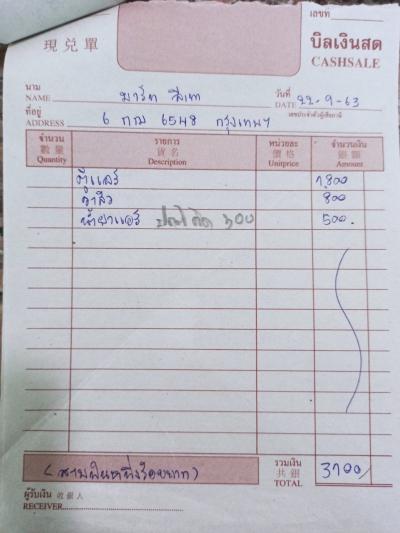 เลขที่
現兌單
บิลเงินสด
CASHSALE
นาม
NAME
วันที่
DATE 22-9-63
ที่อยู่
ADDRESS 6 กฌ 6548 กรุงเทพฯ
เลขประจำตัวผู้เสียภาษี
จำนวน รายการ หน่วยละ จำนวนเงิน
數量 貨名 價格 銀額
Quantity Description Unitprice Amount
ตู้แอร์ 1,800
800
น้ำยาแอร์ 300 500.
(สามพันหนึ่งร้อยบาท)
รวมเงิน
共銀
TOTAL 3100/
ผู้รับเงิน 收銀人
RECEIVER